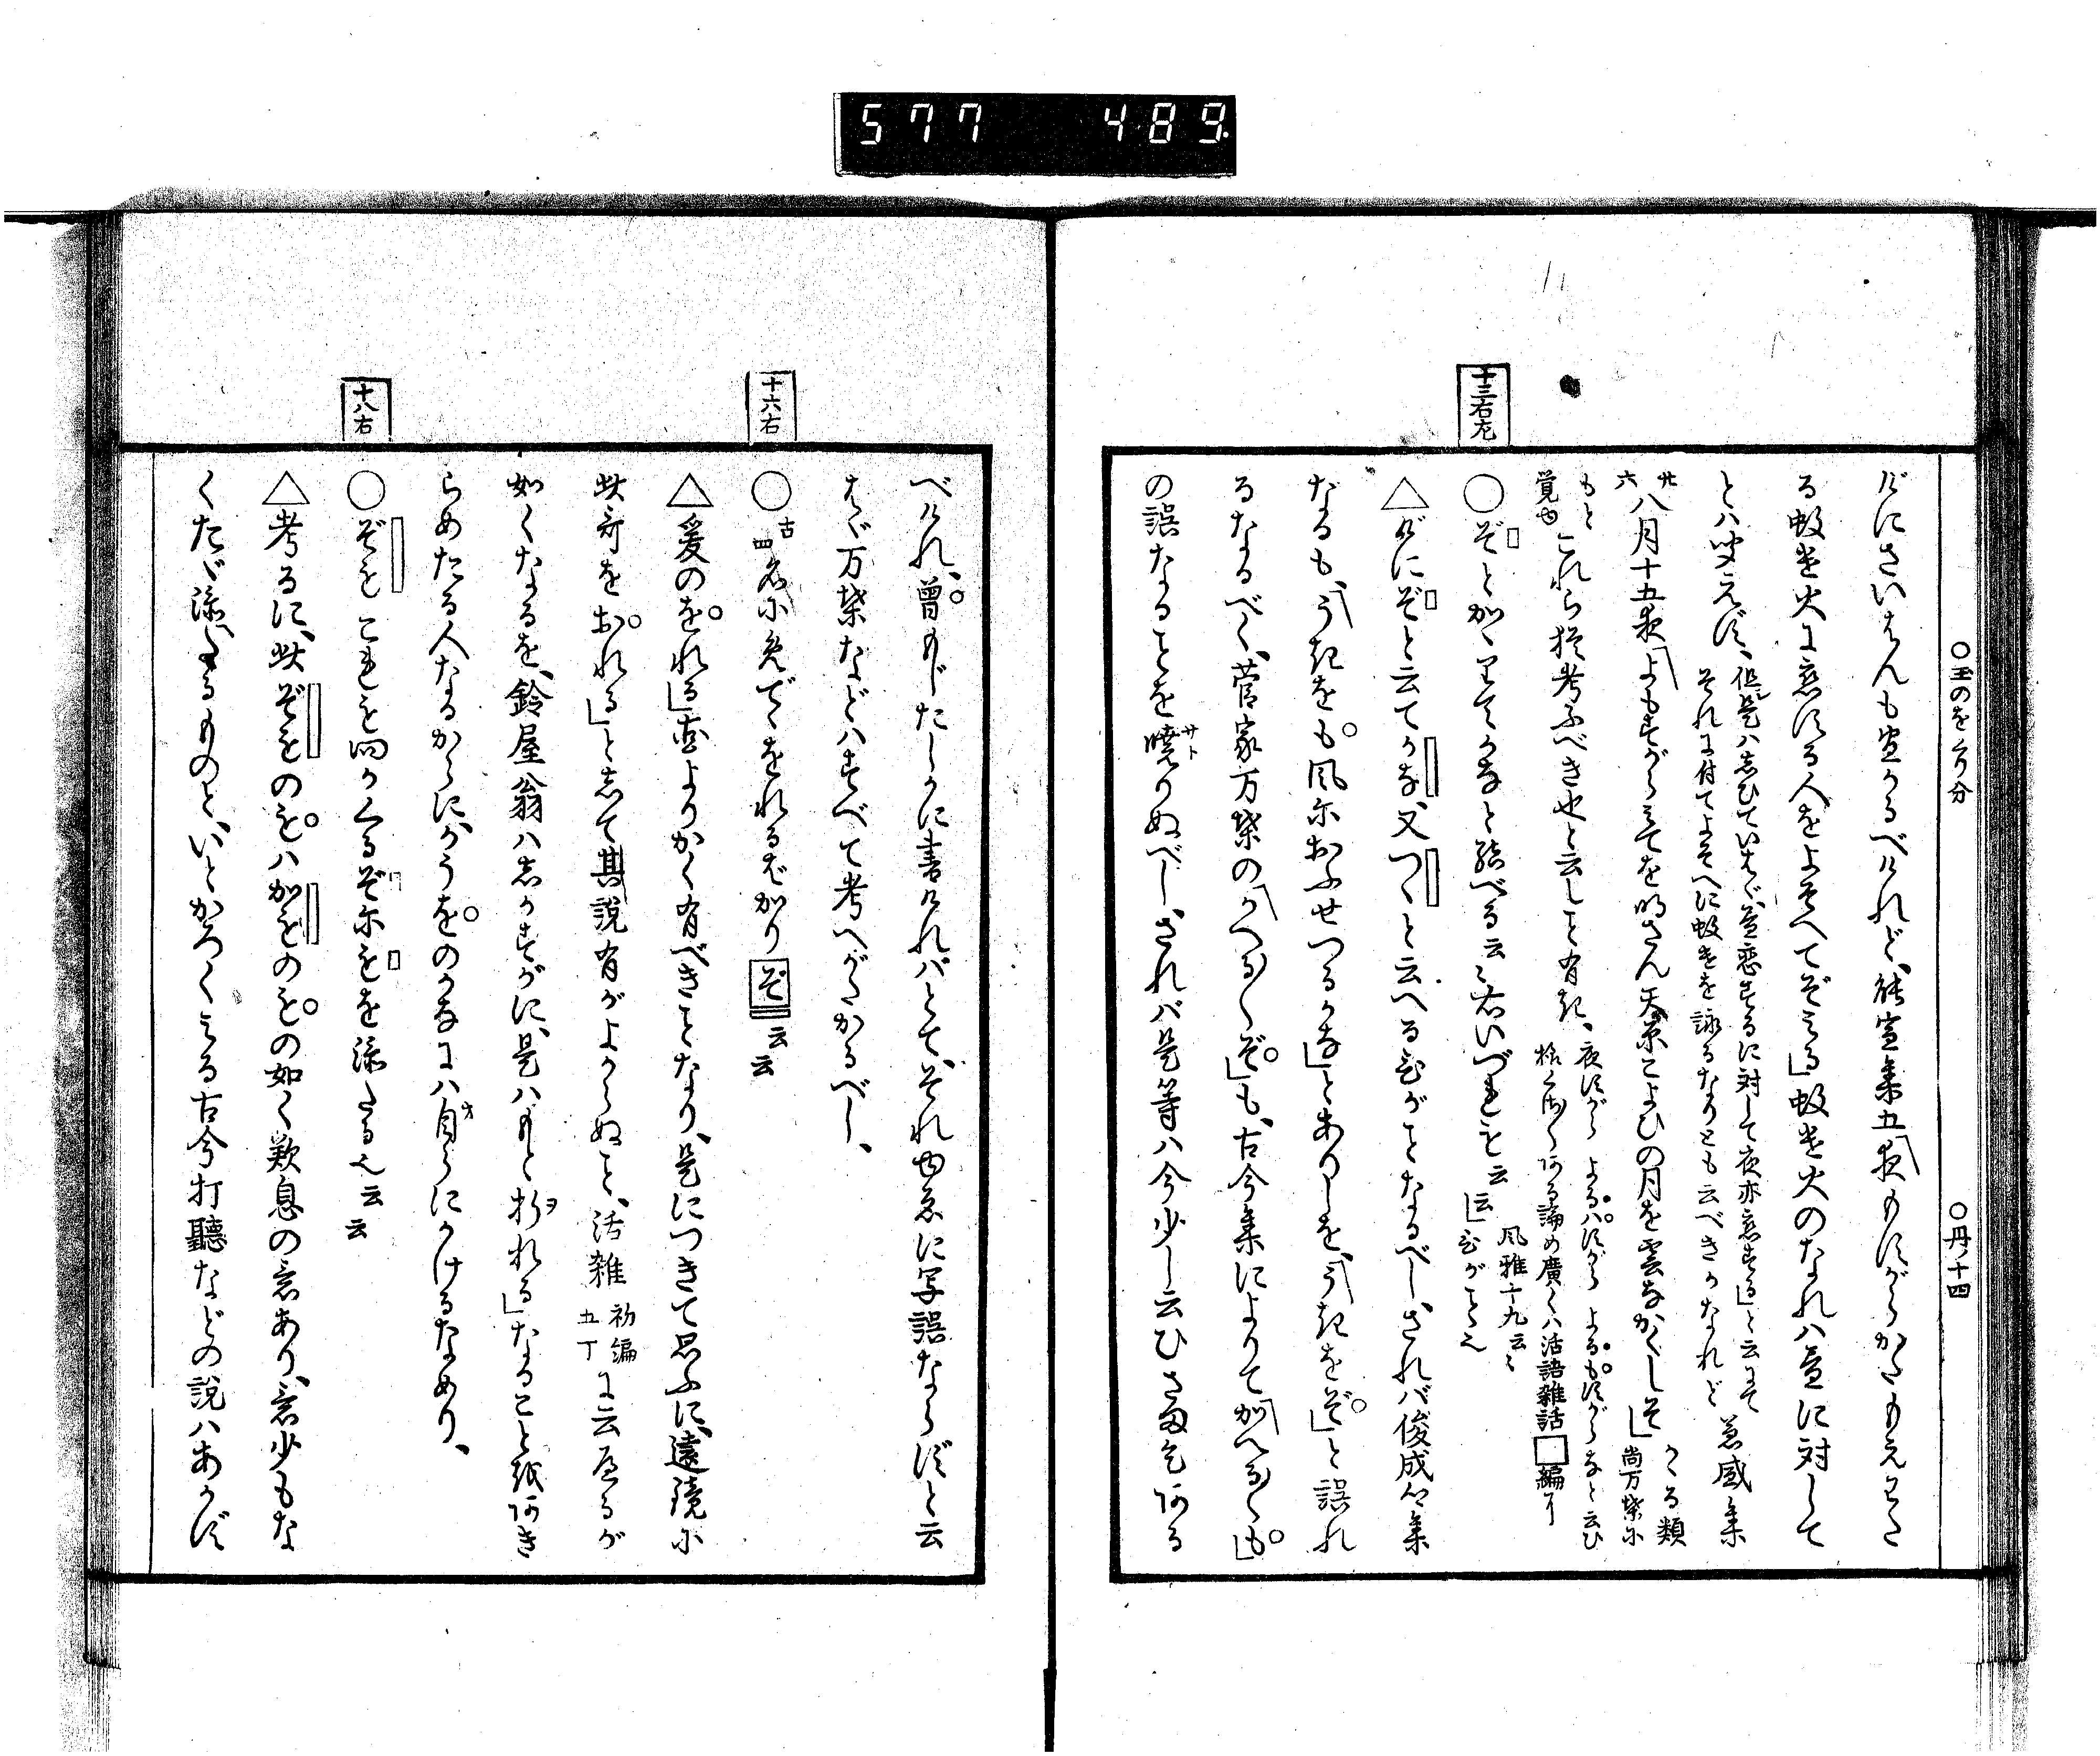 577 489
○玉のをくり分 ○丹ノ十四
十三右左
ずにさいはんも宜かるべけれど、能宣集五「夜もすがらかたもえわた
る蚊遣火に恋する人をよそへてぞみる」蚊遣火のなれハ昼に対して
とハ聞えず、
但し是ハしひていはゞ昼恋するに対して夜亦恋する」と云にて
それに付てよそへに蚊遣を詠るなりとも云べきかなれど
八月十五夜「よもすがらみてを明さん
こよひの月を雲なかくしそ」
かゝる類
尚万葉に
もと
覚ゆ
これら猶考ふべき也と云しこと有き、
夜すがら よるハすがら よるもすがらなど云ひ
論め廣くハ活語雑話□編に
○ぞとかゝりてかなと結べる云々右いづれも云云」
風雅十九云々
ひがこと也
△げにぞと云てかな又つゝと云へるひがことなるべし、されバ俊成公集
なるも、「うきをも風におふせつるかな」とありしを、「うきをぞ」と誤れ
るなるべく、菅家万葉の「かへる〳〵ぞ」も、古今集によりて「かへる〳〵も」
の誤なることを曉りぬべし、されバ是等ハ今少し云ひさまこそある
べけれ、曾もじたしかに書けれバとて、それゆゑに写誤ならずと云
はゞ万葉などハすべて考へがたかるべし、
十六右
○
古
四
名に免でゝをれるばかりぞ云云
△爰のをれる」昔よりかく有べきことなり、是につきて思ふに、遠鏡に
此哥をおれる」と志て其説有がよからぬこと、活雑
初編
五丁
に云へるが
如くなるを、鈴屋翁ハ志かすがに、是ハもと折れる」なることをあき
らめたる人なるからに、かうをのかなにハ自らにかけるなめり、
十八右
○ぞを これも問かくるぞにをを添たる也云云
△考るに、此ぞをのをハかをのをの如く歎息の意あり、意少もな
くたゞ添たるものと、いとかろくみる古今打聽などの説ハあかず